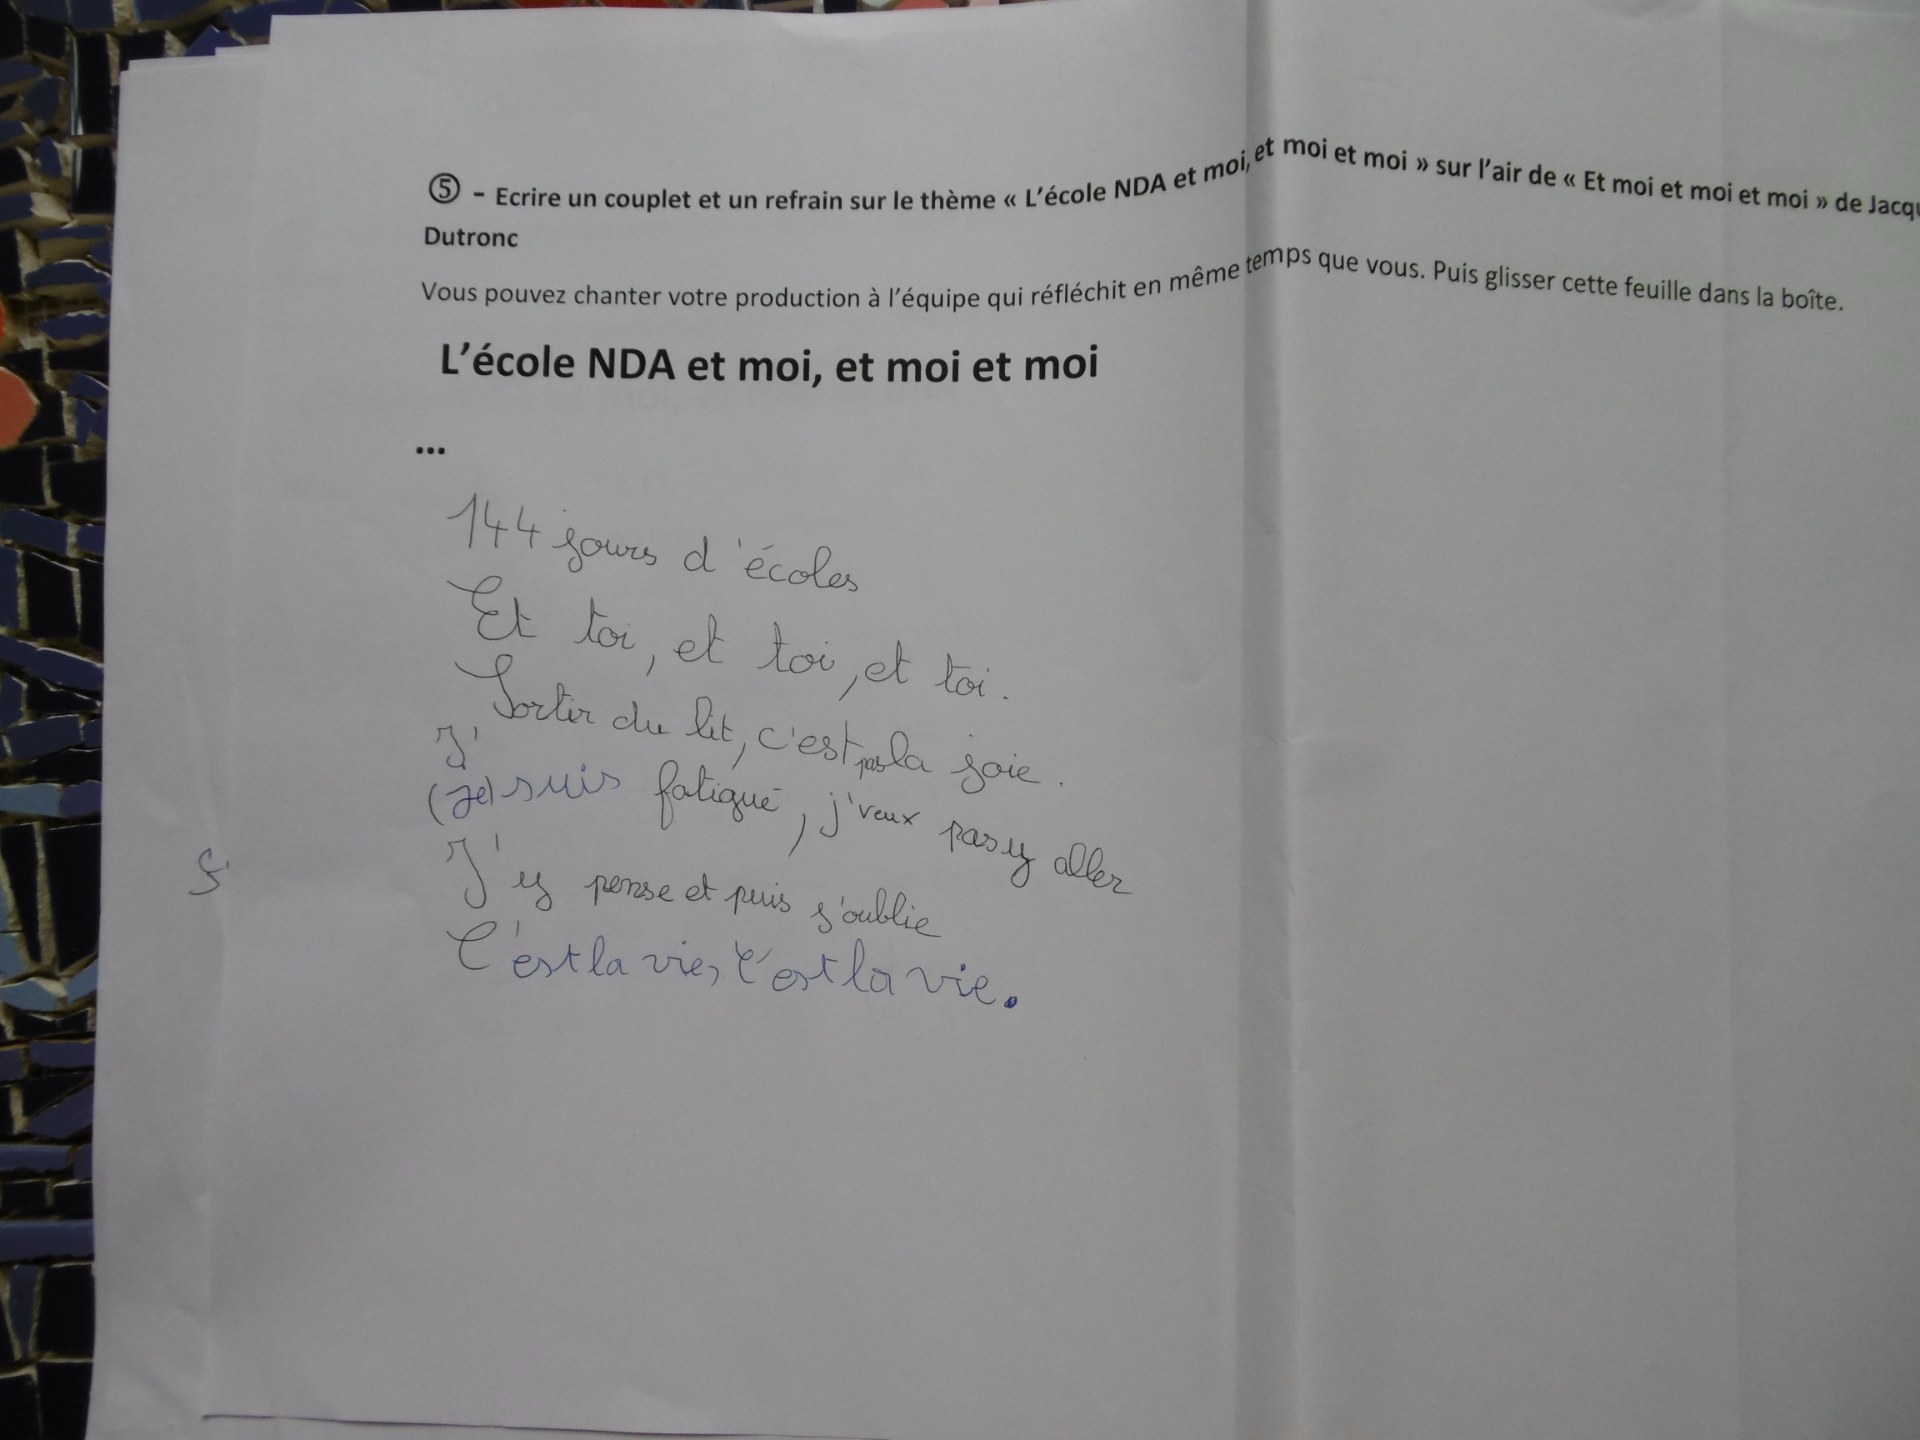 ⑤ – Ecrire un couplet et un refrain sur le thème « L'école NDA et moi, et moi et moi » sur l'air de « Et moi et moi et moi » de Jacqu
Dutronc
Vous pouvez chanter votre production à l'équipe qui réfléchit en même temps que vous. Puis glisser cette feuille dans la boîte.
L'école NDA et moi, et moi et moi
...
144 jours d'écoles
Et toi, et toi, et toi.
Sortir du lit, c'est pas la joie.
J'
(Je) suis fatigué, j'veux pas y aller
J'y pense et puis j'oublie
C'est la vie, c'est la vie.